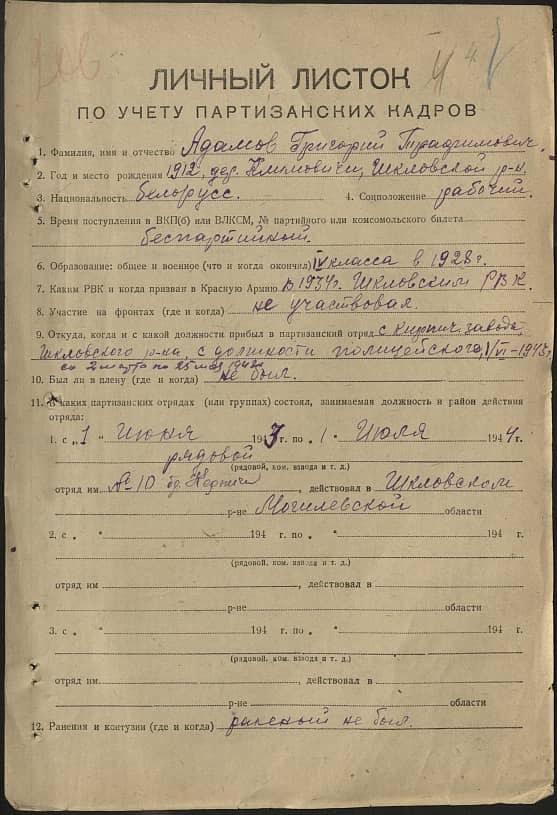 ЛИЧНЫЙ ЛИСТОК
ПО УЧЕТУ ПАРТИЗАНСКИХ КАДРОВ
1. Фамилия, имя и отчество Адамов Григорий Трафимович
2. Год и место рождения 1912, дер. Климовичи, Шкловской р-н.
3. Национальность белорусс. 4. Соцположение рабочий.
5. Время поступления в ВКП(б) или ВЛКСМ, № партийного или комсомольского билета
беспартийной
6. Образование: общее и военное (что и когда окончил) IV класса в 1928 г.
7. Каким РВК и когда призван в Красную Армию В 1934 г. Шкловским РВК.
8. Участие на фронтах (где и когда) не участвовал.
9. Откуда, когда и с какой должности прибыл в партизанский отряд с кирпич. завода
Шкловского р-на, с должности полицейского, 1/VI-1943 г.
со 2 марта по 25 мая
10. Был ли в плену (где и когда) не был.
11. В каких партизанских отрядах (или группах) состоял, занимаемая должность и район действия
отряда:
1. с „1 “ Июня 1943 г. по „1 “ Июля 1944 г.
рядовой
(рядовой, ком. взвода и т. д.)
отряд им № 10 бр. , действовал в Шкловском
р-не Могилевской области
2. с „ “ 194 г. по „ “ 194 г.
(рядовой, ком. взвода и т. д.)
отряд им , действовал в
р-не области
3. с „ “ 194 г. по „ “ 194 г.
(рядовой, ком. взвода и т. д.)
отряд им. , действовал в
р-не области
12. Ранения и контузии (где и когда) раненый не был.